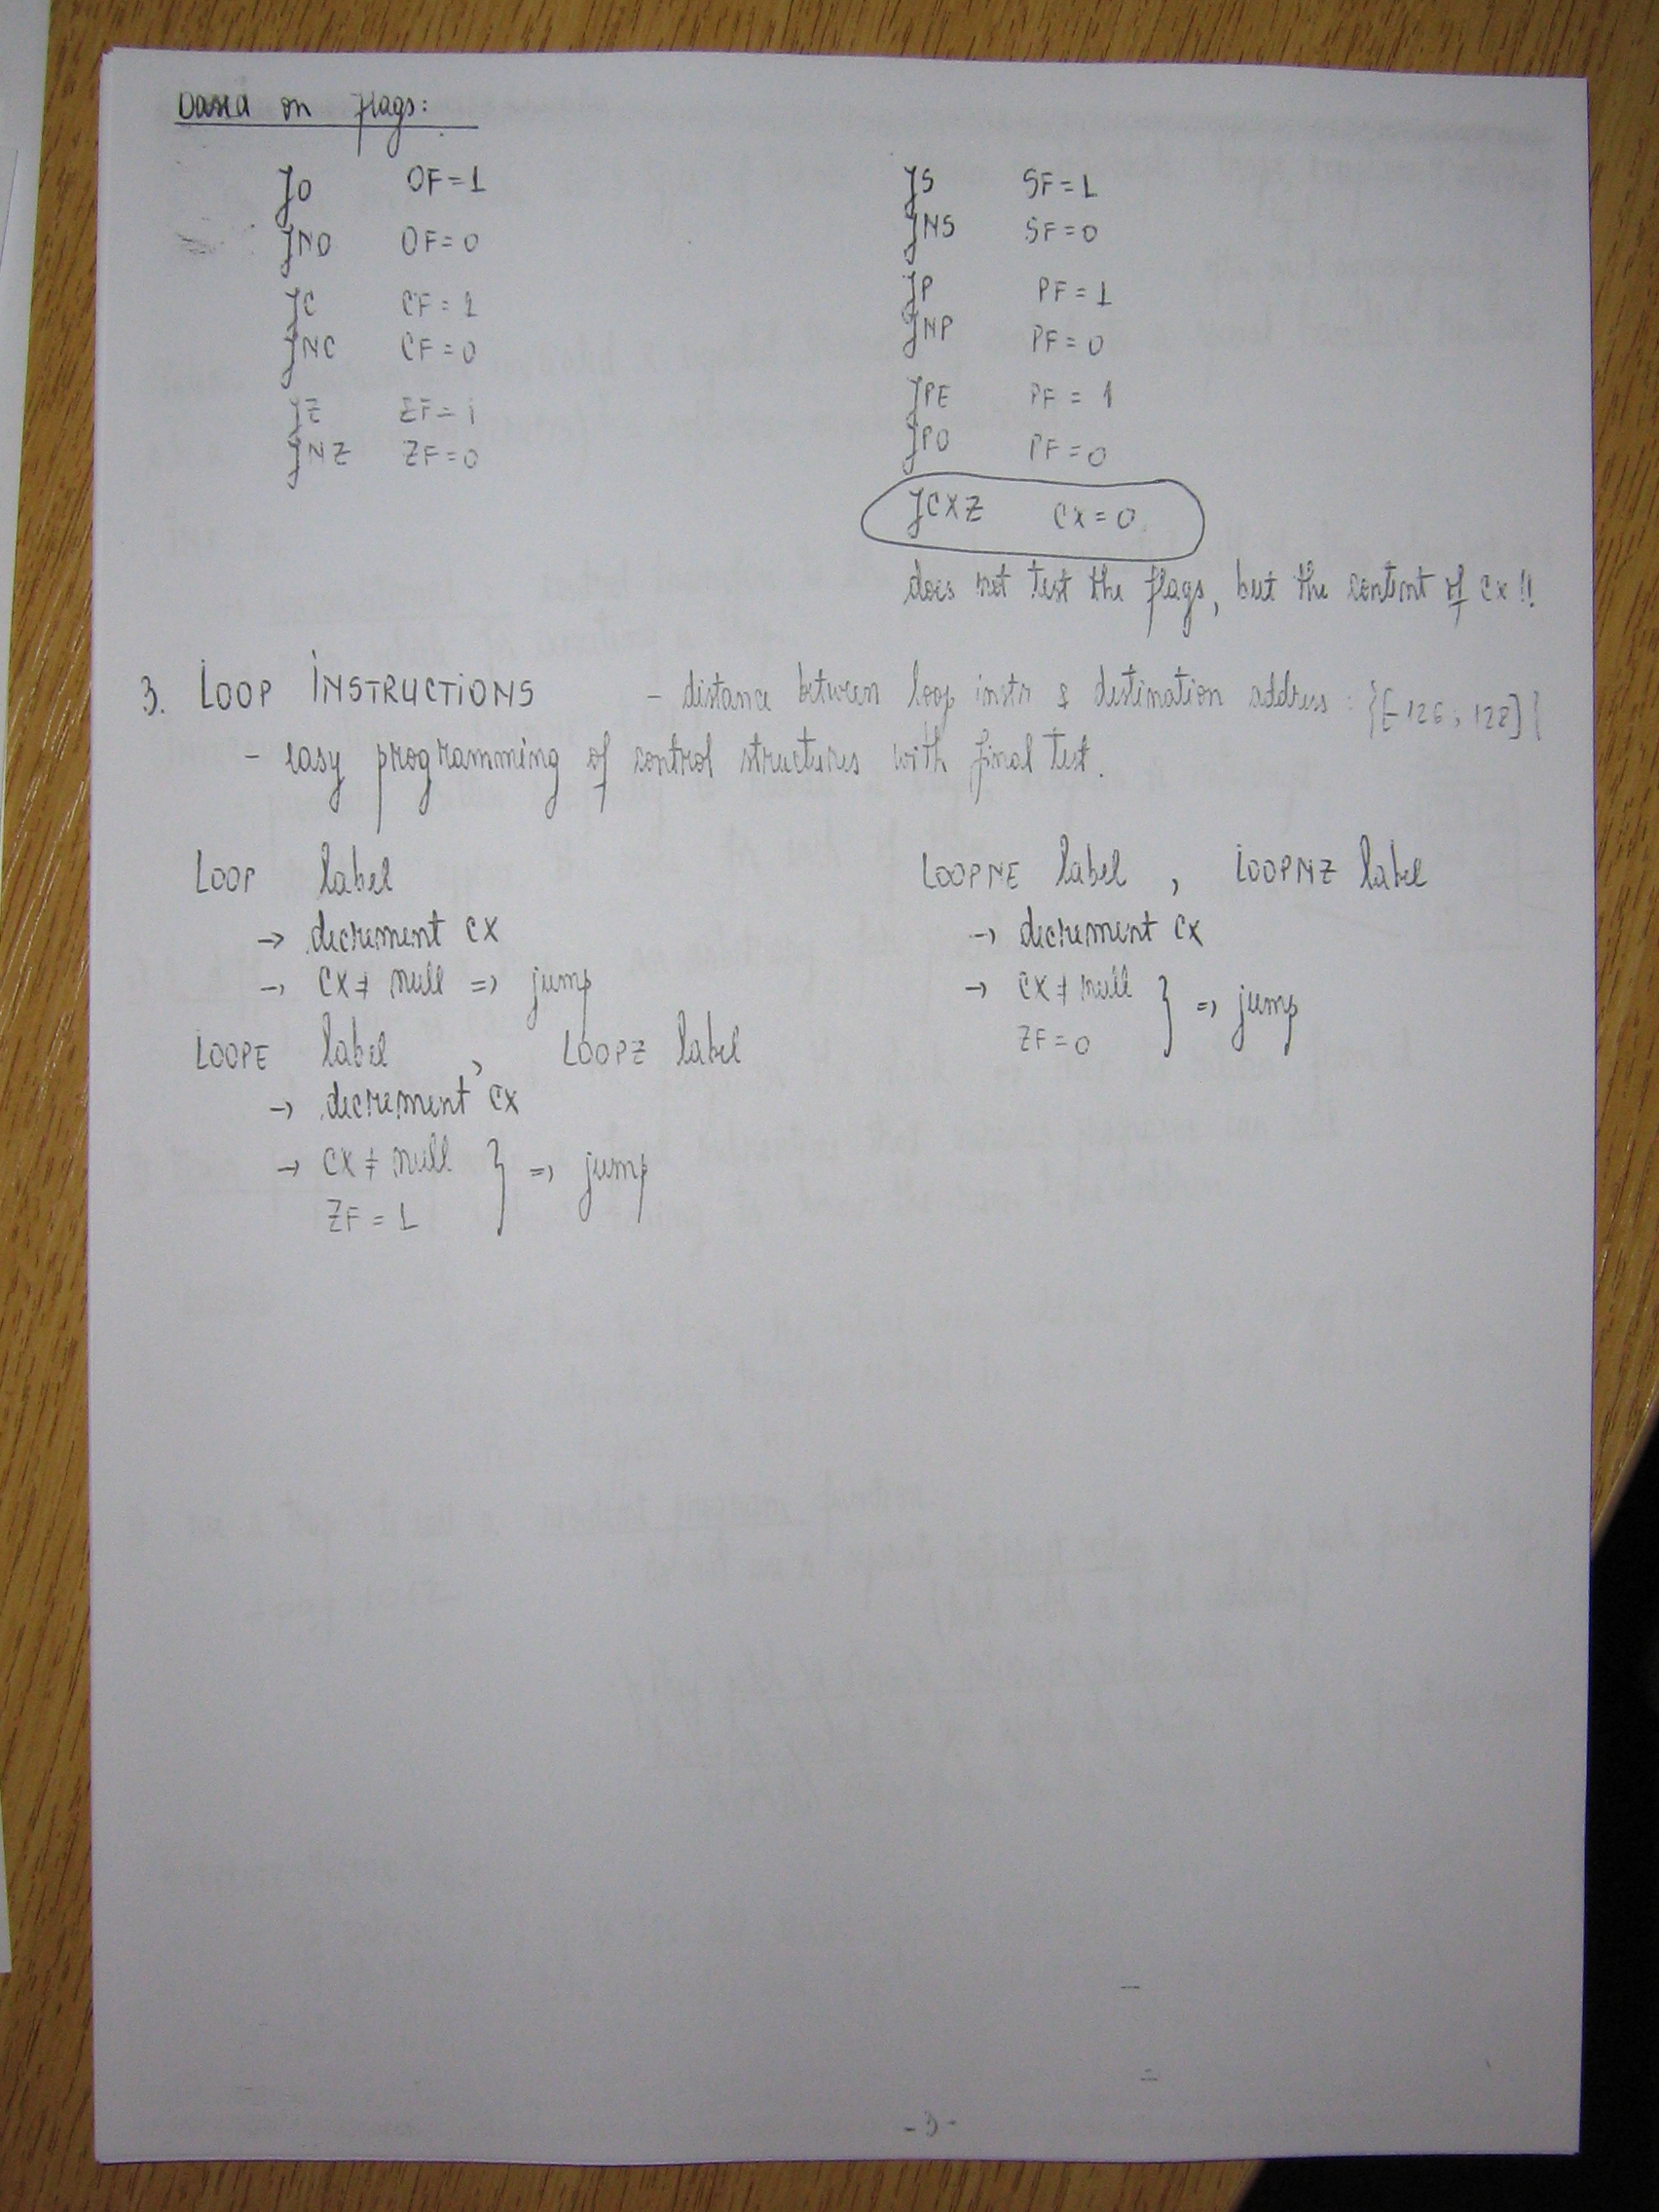 based on flags:
JO OF=1
JNO OF=0
JC CF=1
JNC CF=0
JZ ZF=1
JNZ ZF=0
JS SF=1
JNS SF=0
JP PF=1
JNP PF=0
JPE PF=1
JPO PF=0
JCXZ CX=0
does not test the flags, but the content of CX!!
3. LOOP INSTRUCTIONS - distance between loop instr & destination address : {[-126, 128]}
- easy programming of control structures with final test.
LOOP label
→ decrement CX
→ CX ≠ null => jump
LOOPE label , LOOPZ label
→ decrement CX
→ CX ≠ null } => jump
ZF = 1
LOOPNE label , LOOPNZ label
→ decrement CX
→ CX ≠ null } => jump
ZF = 0
-3-